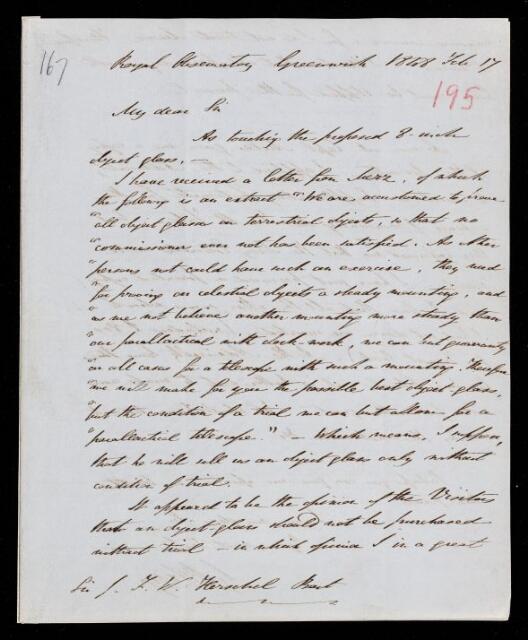 167
Royal Observatory Greenwich 1848 Feb 17
195
My dear Sir
As touching the proposed 8-inch
object glass, —
I have received a letter from Merz, of which
the following is an extract "We are accustomed to prove
"all object glasses on terrestrial objects, so that no
"commissioner ever not has been satisfied. As other
"persons not could have such an exercise, they need
"for proving on celestial objects a steady mounting, and
"as we not believe another mounting more steady than
"our parallactical with clock-work, we can but guaranty
"in all cases for a telescope with such a mounting. Therefore
"we will make for you the possible best object glass,
"but the condition of a trial we can but allow for a
"parallactical telescope." — Which means, I suppose,
that he will sell us an object glass only without
condition of trial.
It appeared to be the opinion of the Visitors
that an object glass should not be purchased
without trial — in which opinion I in a great
Sir J. F. W. Herschel Bart